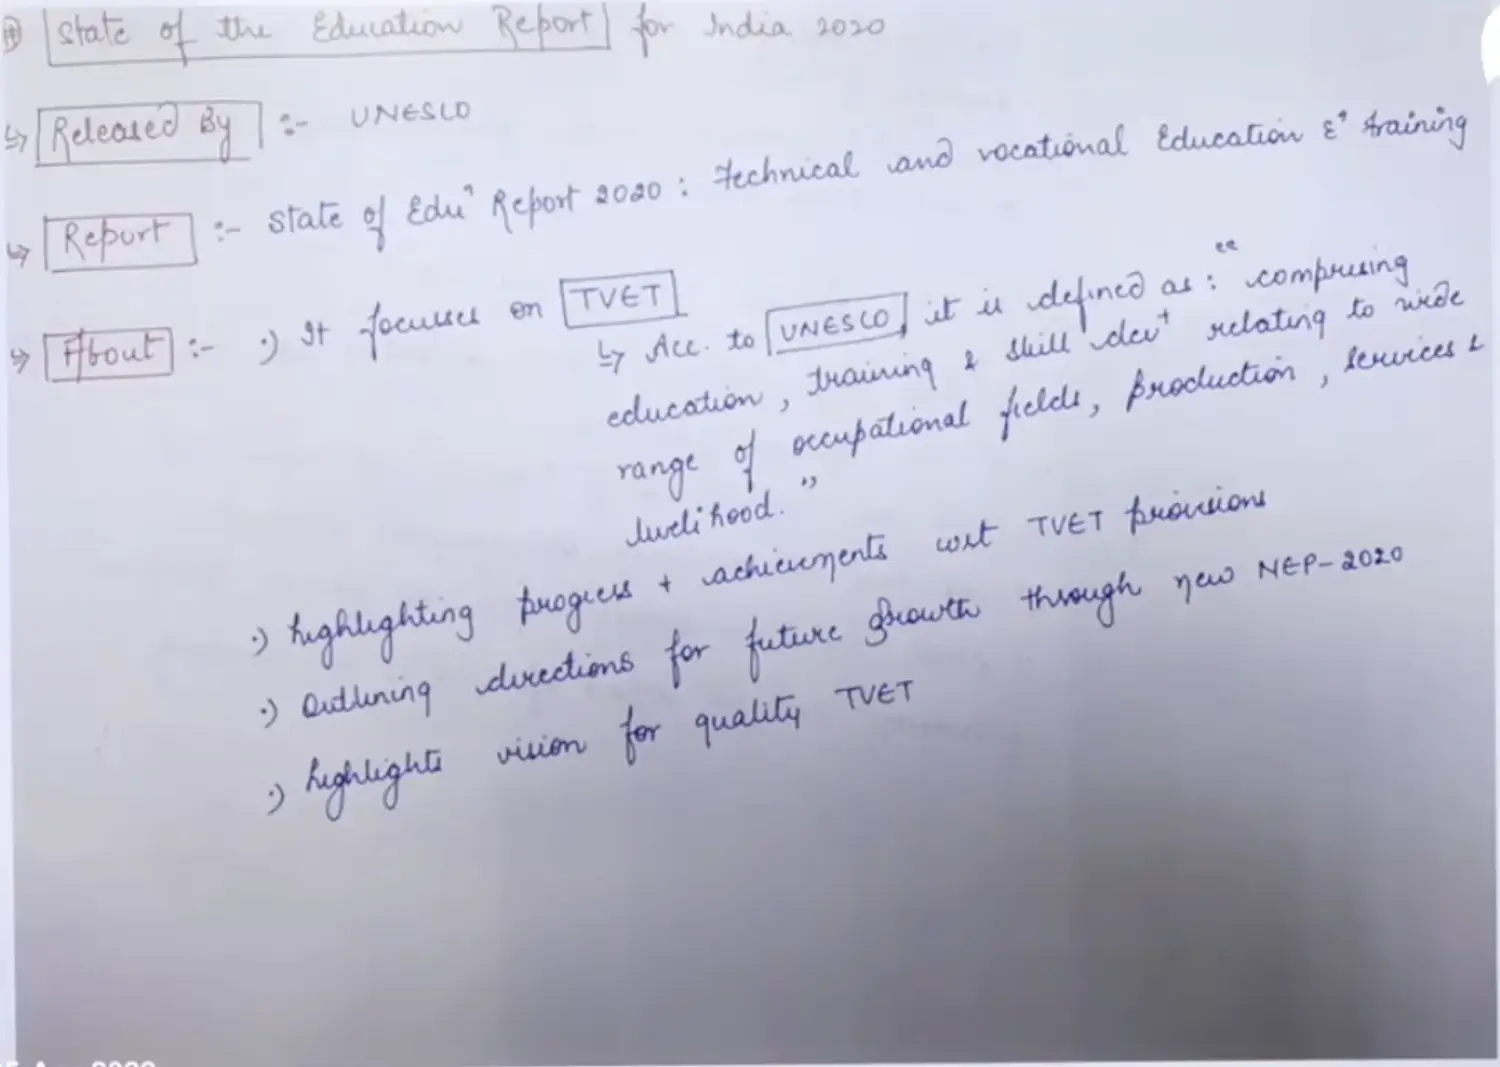 State of the Education Report for India 2020
↳ Released By :- UNESCO
↳ Report :- State of Eduⁿ Report 2020 : Technical and vocational Education & training
↳ About :- •) It focuses on TVET
↳ Acc. to UNESCO, it is defined as : "comprising
education, training & skill devt relating to wide
range of occupational fields, production, services &
livelihood."
•) highlighting progress + achievements wrt TVET provisions
•) Outlining directions for future growth through new NEP-2020
•) highlights vision for quality TVET